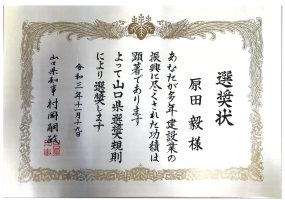 選奨状
原田 毅 様
あなたが多年建設業の
振興に尽くされた功績は
顕著であります
よって山口県選奨規則
により選奨します
令和三年十一月十九日
山口県知事 村岡嗣政